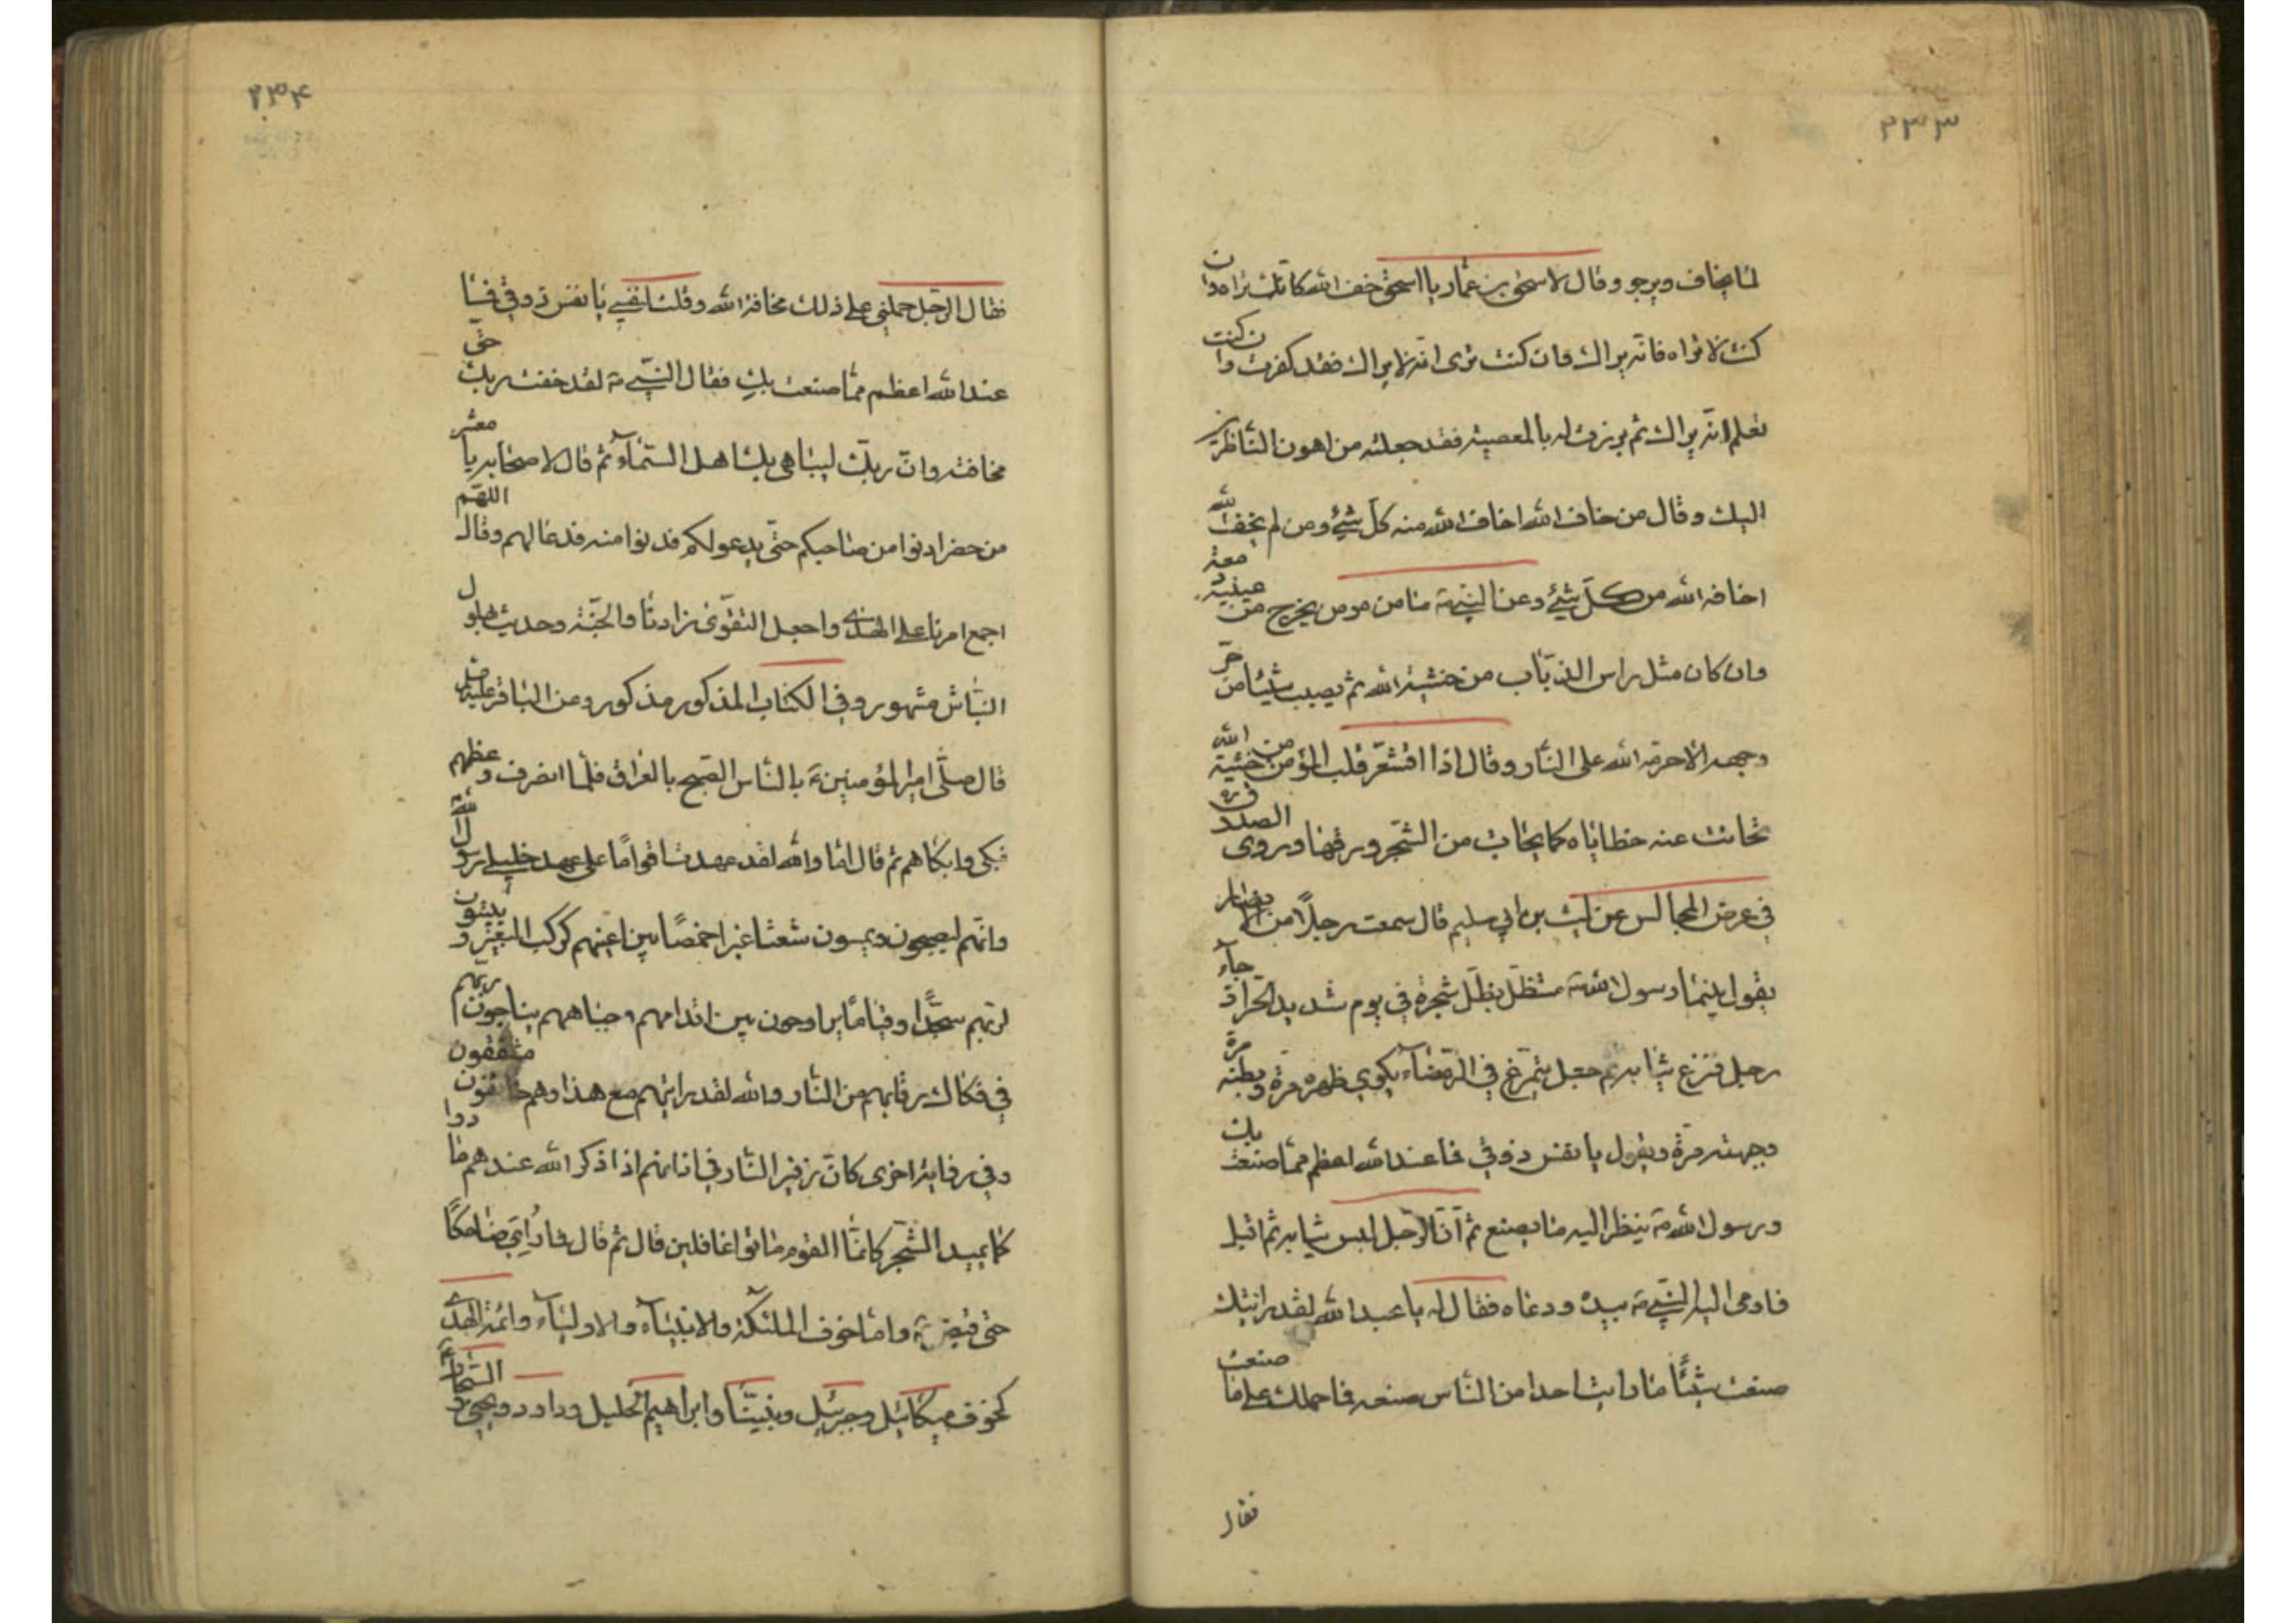 ۲۳۳
لما يخاف ويرجو وقال لاسحق بن عمار يا اسحق خف الله كانك تراه وان
كنت لا تراه فانه يراك فان كنت ترى انه لا يراك فقد كفرت وان كنت
تعلم انه يراك ثم برزت له بالمعصية فقد جعلته من اهون الناظرين
اليك وقال من خاف الله اخاف الله منه كل شئ ومن لم يخف الله
اخافه الله من كل شئ وعن النبي ص ما من مومن يخرج من عينيه دمعة
وان كان مثل راس الذباب من خشية الله ثم يصيب شيئا من حر
وجهه الا حرمه الله على النار وقال اذا اقشعر قلب المؤمن من خشية الله
تحاتت عنه خطاياه كما يتحات من الشجر ورقها وروى الصدوق ره
في عرض المجالس عن ليث بن ابي سليم قال سمعت رجلا من الانصار
يقول بينما رسول الله ص مستظل بظل شجرة في يوم شديد الحر اذ جآء
رجل فنزع ثيابه ثم جعل يتمرغ في الرمضآء يكوي ظهره مرة وبطنه مرة
وجبهته مرة ويقول يا نفس ذوقي فما عند الله اعظم مما صنعت بك
ورسول الله ص ينظر اليه ما يصنع ثم ان الرجل لبس ثيابه ثم اقبل
فاومى اليه النبي ص بيده ودعاه فقال له يا عبد الله لقد رايتك
صنعت شيئا ما رايت احدا من الناس صنعه فما حملك على ما صنعت
فقال
۲۳۴
فقال الرجل حملني على ذلك مخافة الله وقلت لنفسي يا نفس ذوقي فما
عند الله اعظم مما صنعت بك فقال النبي ص لقد خفت ربك حق
مخافته وان ربك ليباهي بك اهل السمآء ثم قال لاصحابه يا معشر
من حضر ادنوا من صاحبكم حتى يدعو لكم فدنوا منه فدعا لهم وقال اللهم
اجمع امرنا على الهدى واجعل التقوى زادنا والجنة وحديث بهلول
النباش مشهور وفي الكتاب المذكور مذكور وعن الباقر عليه
قال صلى امير المؤمنين ع بالناس الصبح بالعراق فلما انصرف وعظهم
فبكى وابكاهم ثم قال اما والله لقد عهدت اقواما على عهد خليلي رسول الله
وانهم ليصبحون ويمسون شعثا غبرا خمصا بين اعينهم كركب المعزى و يبيتون
لربهم سجدا وقياما يراوحون بين اقدامهم وجباههم يناجون ربهم
في فكاك رقابهم من النار والله لقد رايتهم مع هذا وهم خائفون مشفقون
وفي رواية اخرى كان زفير النار في اذانهم اذا ذكر الله عندهم مادوا
كما يميد الشجر كانما القوم باتوا غافلين قال ثم قال فما رؤي ضاحكا
حتى قبض ع واما خوف الملئكة والانبيآء والاوليآء وائمة الهدى
كخوف ميكائيل وجبرئيل ونبينا وابراهيم الخليل وداود ويحيى و السجاد ع